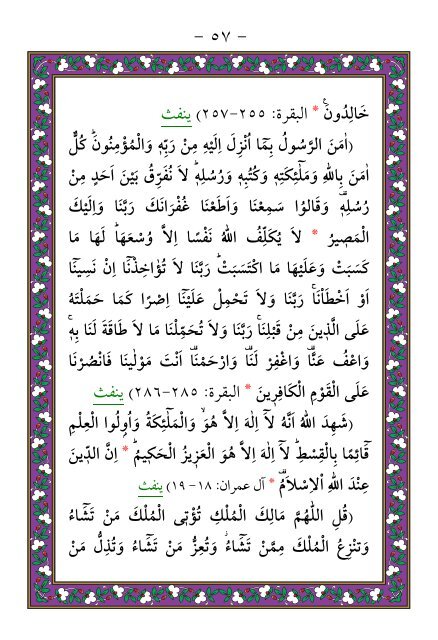 - ٥٧ -
خَالِدُونَۚ * البقرة: ٢٥٥-٢٥٧) ينفث
(اٰمَنَ الرَّسُولُ بِمَٓا اُنْزِلَ اِلَيْهِ مِنْ رَبِّهٖ وَالْمُؤْمِنُونَۜ كُلٌّ
اٰمَنَ بِاللهِ وَمَلٰٓئِكَتِهٖ وَكُتُبِهٖ وَرُسُلِهٖۜ لاَ نُفَرِّقُ بَيْنَ اَحَدٍ مِنْ
رُسُلِهٖۜ وَقَالُوا سَمِعْنَا وَاَطَعْنَا غُفْرَانَكَ رَبَّنَا وَاِلَيْكَ
الْمَصٖيرُ * لاَ يُكَلِّفُ اللهُ نَفْسًا اِلاَّ وُسْعَهَاۜ لَهَا مَا
كَسَبَتْ وَعَلَيْهَا مَا اكْتَسَبَتْۜ رَبَّنَا لاَ تُؤَاخِذْنَٓا اِنْ نَسٖينَٓا
اَوْ اَخْطَاْنَاۚ رَبَّنَا وَلاَ تَحْمِلْ عَلَيْنَٓا اِصْرًا كَمَا حَمَلْتَهُ
عَلَى الَّذٖينَ مِنْ قَبْلِنَاۚ رَبَّنَا وَلاَ تُحَمِّلْنَا مَا لاَ طَاقَةَ لَنَا بِهٖۚ
وَاعْفُ عَنَّا۠ وَاغْفِرْ لَنَا۠ وَارْحَمْنَا۠ اَنْتَ مَوْلٰينَا فَانْصُرْنَا
عَلَى الْقَوْمِ الْكَافِرٖينَ * البقرة: ٢٨٥-٢٨٦) ينفث
(شَهِدَ اللهُ اَنَّهُ لَٓا اِلٰهَ اِلاَّ هُوَۙ وَالْمَلٰٓئِكَةُ وَاُولُوا الْعِلْمِ
قَٓائِمًا بِالْقِسْطِۜ لَٓا اِلٰهَ اِلاَّ هُوَ الْعَزٖيزُ الْحَكٖيمُۜ * اِنَّ الدّٖينَ
عِنْدَ اللهِ الْاِسْلاَمُ۠ * آل عمران: ١٨-١٩) ينفث
(قُلِ اللّٰهُمَّ مَالِكَ الْمُلْكِ تُؤْتِي الْمُلْكَ مَنْ تَشَٓاءُ
وَتَنْزِعُ الْمُلْكَ مِمَّنْ تَشَٓاءُۘ وَتُعِزُّ مَنْ تَشَٓاءُ وَتُذِلُّ مَنْ